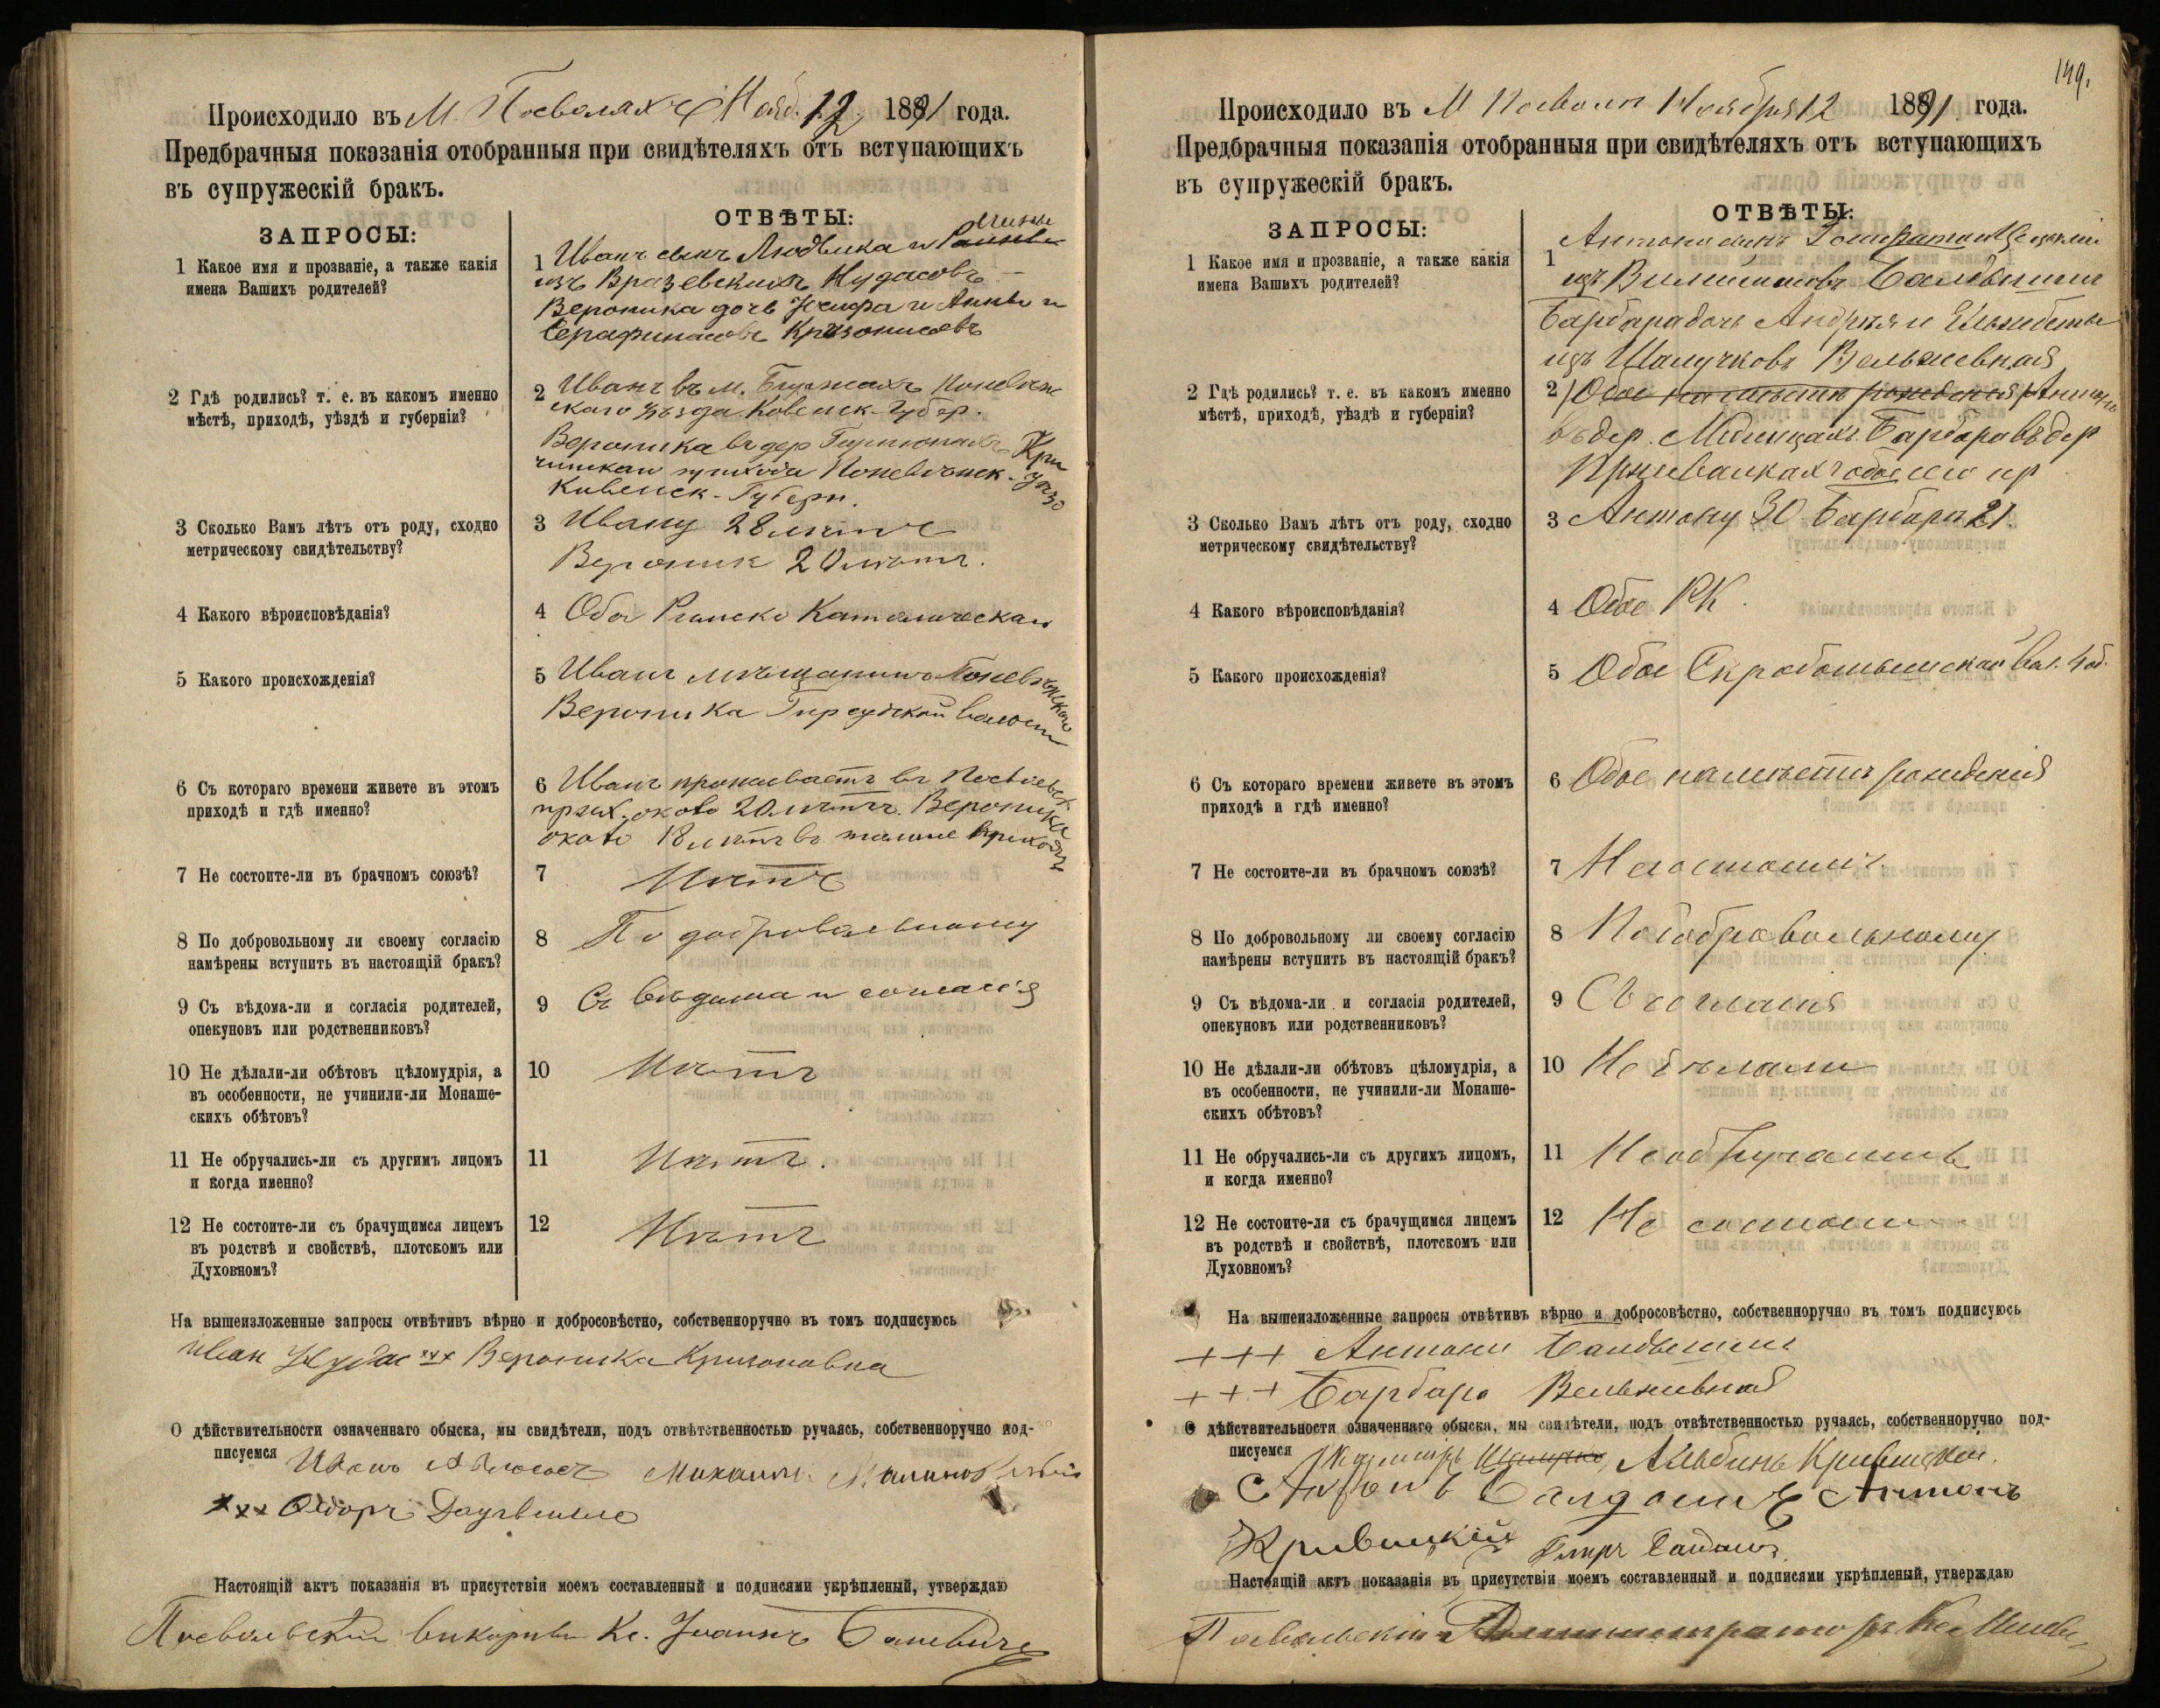 Происходило въ М. Посволяхъ Нояб. 12 1891 года.
Предбрачныя показанія отобранныя при свидѣтеляхъ отъ вступающихъ
въ супружескій бракъ.
ЗАПРОСЫ:
ОТВѢТЫ:
1 Какое имя и прозваніе, а также какія
имена Вашихъ родителей?
1 Иванъ сынъ Людвика и
изъ Нудасовъ
Вероника дочь Іосифа и Анны и
2 Гдѣ родились? т. е. въ какомъ именно
мѣстѣ, приходѣ, уѣздѣ и губерніи?
2 Иванъ въ м. Биржахъ Поневѣж
скаго уѣзда Ковенск. Губер.
Вероника въ дер
прихода Поневѣжск. уѣзд
Ковенск. Губерн.
3 Сколько Вамъ лѣтъ отъ роду, сходно
метрическому свидѣтельству?
3 Ивану 28 лѣтъ
Вероник 20 лѣтъ.
4 Какого вѣроисповѣданія?
4 Обое Римско Католическаго
5 Какого происхожденія?
5 Иванъ мѣщанинъ Поневѣжскаго
Вероника волости
6 Съ котораго времени живете въ этомъ
приходѣ и гдѣ именно?
6 Иванъ проживаетъ въ Посвольск
прих. около 20 лѣтъ. Вероника
около 18 лѣтъ въ томже приходѣ
7 Не состоите-ли въ брачномъ союзѣ?
7 Нѣтъ
8 По добровольному ли своему согласію
намѣрены вступить въ настоящій бракъ?
8 По добровольному
9 Съ вѣдома-ли и согласія родителей,
опекуновъ или родственниковъ?
9 Съ вѣдома и согласія
10 Не дѣлали-ли обѣтовъ цѣломудрія, а
въ особенности, не учинили-ли Монаше-
скихъ обѣтовъ?
10 Нѣтъ
11 Не обручались-ли съ другимъ лицомъ
и когда именно?
11 Нѣтъ.
12 Не состоите-ли съ брачущимся лицемъ
въ родствѣ и свойствѣ, плотскомъ или
Духовномъ?
12 Нѣтъ
На вышеизложенные запросы отвѣтивъ вѣрно и добросовѣстно, собственноручно въ томъ подписуюсь
Иван Нудас ххх Вероника Кризоновна
О дѣйствительности означеннаго обыска, мы свидѣтели, подъ отвѣтственностью ручаясь, собственноручно под-
писуемся Иванъ Михаилъ Малиновскій
ххх
Настоящій актъ показанія въ присутствіи моемъ составленный и подписями укрѣпленый, утверждаю
Посвольскій викорный Кс. Іоаннъ
149.
Происходило въ М Посволи Ноября 12 1891 года.
Предбрачныя показанія отобранныя при свидѣтеляхъ отъ вступающихъ
въ супружескій бракъ.
ЗАПРОСЫ:
ОТВѢТЫ:
1 Какое имя и прозваніе, а также какія
имена Вашихъ родителей?
Антони сынъ
1 изъ
Барбара дочь Андрея и Ельжбеты
изъ
2 Гдѣ родились? т. е. въ какомъ именно
мѣстѣ, приходѣ, уѣздѣ и губерніи?
2 Обое на мѣстѣ рожденія Антони
въ дер. Барбара въ дер
обое сего пр
3 Сколько Вамъ лѣтъ отъ роду, сходно
метрическому свидѣтельству?
3 Антону 30 Барбары 21.
4 Какого вѣроисповѣданія?
4 Обое РК.
5 Какого происхожденія?
5 Обое Скроботышской вол.
6 Съ котораго времени живете въ этомъ
приходѣ и гдѣ именно?
6 Обое на мѣстѣ рожденія
7 Не состоите-ли въ брачномъ союзѣ?
7 Не состоимъ
8 По добровольному ли своему согласію
намѣрены вступить въ настоящій бракъ?
8 По добровольному
9 Съ вѣдома-ли и согласія родителей,
опекуновъ или родственниковъ?
9 Съ согласія
10 Не дѣлали-ли обѣтовъ цѣломудрія, а
въ особенности, не учинили-ли Монаше-
скихъ обѣтовъ?
10 Не дѣлали
11 Не обручались-ли съ другихъ лицомъ,
и когда именно?
11 Необручались
12 Не состоите-ли съ брачущимся лицемъ
въ родствѣ и свойствѣ, плотскомъ или
Духовномъ?
12 Не состоим
На вышеизложенные запросы отвѣтивъ вѣрно и добросовѣстно, собственноручно въ томъ подписуюсь
+++ Антони
+++ Барбара
О дѣйствительности означеннаго обыска, мы свидѣтели, подъ отвѣтственностью ручаясь, собственноручно под-
писуемся Альбинъ Кривицкій.
Антонъ
Кривицкій
Настоящій актъ показанія въ присутствіи моемъ составленный и подписями укрѣпленый, утверждаю
Посвольскій Администраторъ